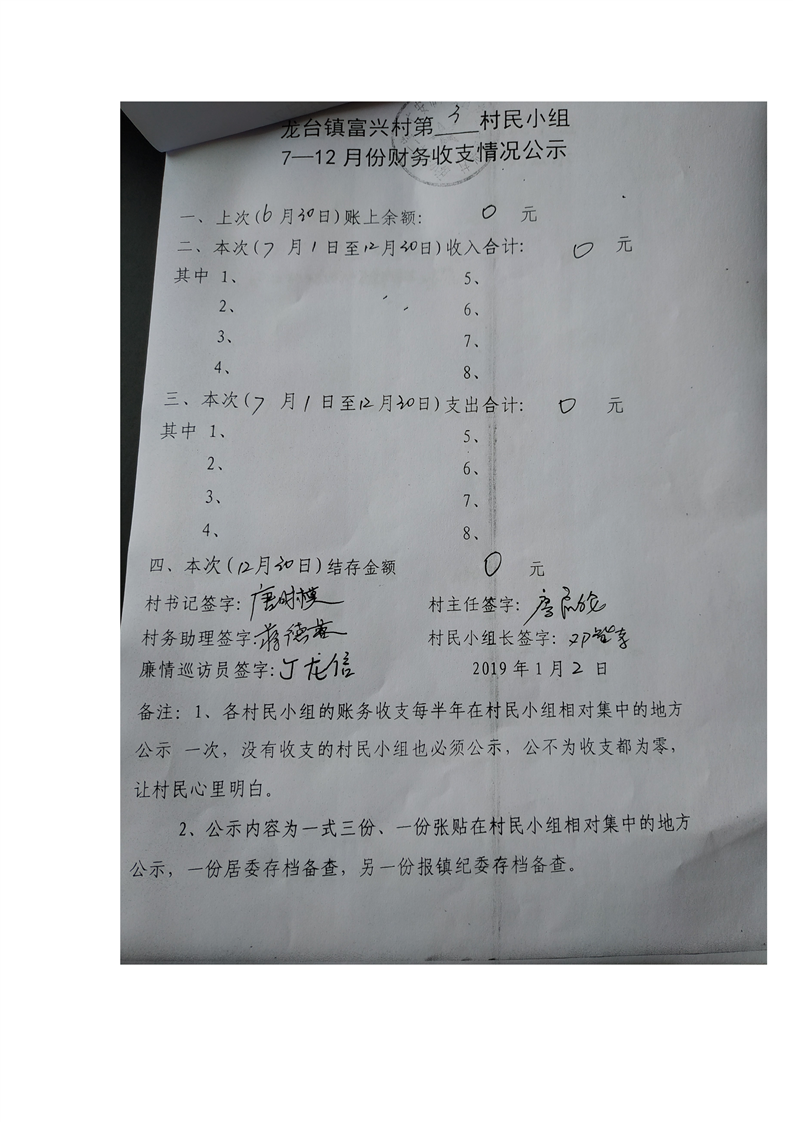 龙台镇富兴村第3村民小组
7—12月份财务收支情况公示
一、上次(6月30日)账上余额: 0 元
二、本次(7月1日至12月30日)收入合计: 0 元
其中 1、 5、
2、 6、
3、 7、
4、 8、
三、本次(7月1日至12月30日)支出合计: 0 元
其中 1、 5、
2、 6、
3、 7、
4、 8、
四、本次(12月30日)结存金额 0 元
村书记签字: 村主任签字:
村务助理签字: 村民小组长签字:
廉情巡访员签字:丁龙信 2019年1月2日
备注: 1、各村民小组的账务收支每半年在村民小组相对集中的地方
公示 一次, 没有收支的村民小组也必须公示, 公不为收支都为零,
让村民心里明白。
2、公示内容为一式三份、一份张贴在村民小组相对集中的地方
公示, 一份居委存档备查, 另一份报镇纪委存档备查。